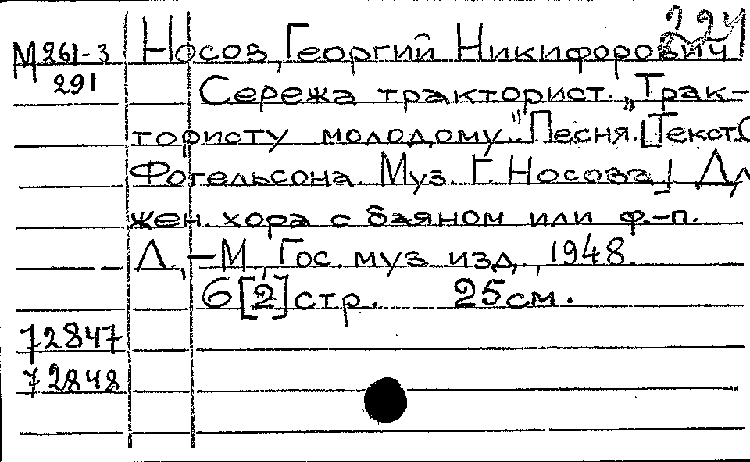 224
М261-3
291
Носов, Георгий Никифорович
Сережа тракторист. „Трак-
тористу молодому". Песня. [Текст С.
Фогельсона. Муз. Г. Носова]. Дл
жен. хора с баяном или ф.-п.
Л.-М., Гос. муз. изд., 1948.
6 [2] стр. 25 см.
72847
72848